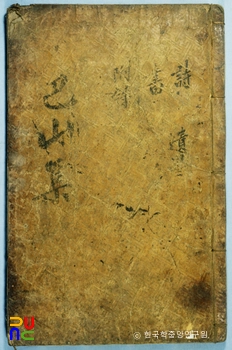 詩 遺
書
附錄
巴山集
© 한국학중앙연구원